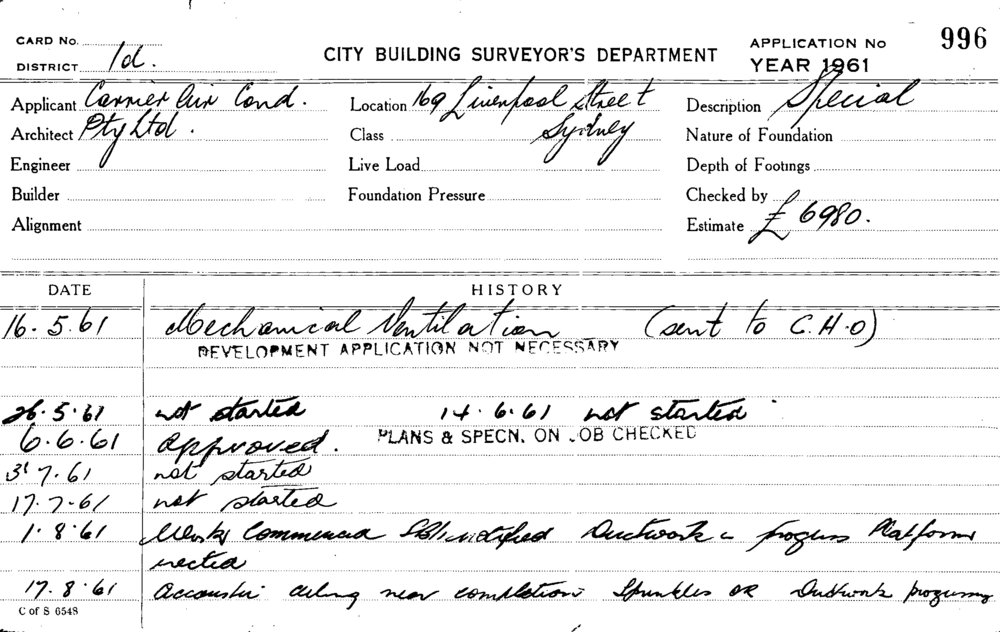 CARD No.
DISTRICT 1d.
CITY BUILDING SURVEYOR'S DEPARTMENT
APPLICATION No 996
YEAR 1961
Applicant Carrier Air Cond.
Location 169 Liverpool Street
Description Special
Architect Pty Ltd.
Class Sydney
Nature of Foundation
Engineer
Live Load
Depth of Footings
Builder
Foundation Pressure
Checked by
Alignment
Estimate £ 6980.
DATE HISTORY
16.5.61 Mechanical Ventilation (sent to C.H.O)
DEVELOPMENT APPLICATION NOT NECESSARY
26.5.61 not started 14.6.61 not started
6.6.61 approved. PLANS & SPECN. ON JOB CHECKED
3.7.61 not started
17.7.61 not started
1.8.61 Works Commenced notified Ductwork in progress Platforms
erected
17.8.61 Accoustic ceiling near completion Sprinklers OK Ductwork progressing
C of S 6548